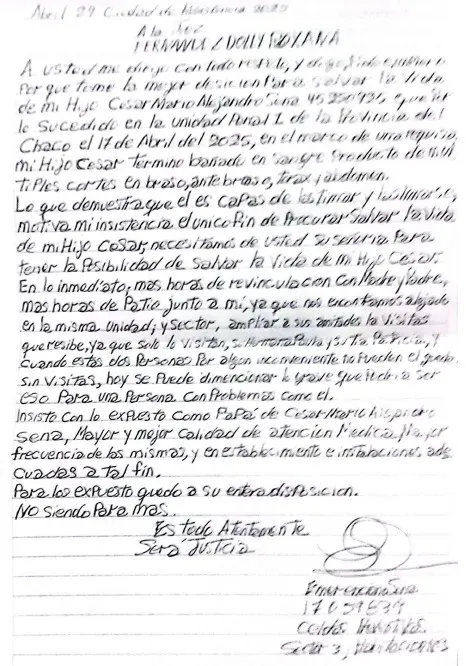 Abril 29 Ciudad de Resistencia 2025
A la Juez
FERNANDEZ DOLLY ROXANA
A usted me dirijo con todo respeto, y digo, Pido
Por que tome la mejor desicion Para salvar la vida
de mi Hijo Cesar Mario Alejandro Sena que Por
lo sucedido en la unidad Penal 1 de la Provincia del
Chaco el 17 de Abril del 2025, en el marco de una requisa,
mi Hijo Cesar termino bañado en sangre Producto de mul
tiples cortes en braso, ante braso, torax y abdomen.
Lo que demuestra que el es capas de lastimar y lastimarse,
motiva mi insistencia el unico fin de Procurar salvar la vida
de mi Hijo Cesar, necesitamos de usted su señoria Para
tener la Posibilidad de salvar la vida de mi Hijo Cesar.
En lo inmediato, mas horas de revinculacion con Madre y Padre,
mas horas de Patio junto a mi, ya que nos encontramos alojado
en la misma unidad, y sector, ampliar a sus amistades la visitas
que recibe, ya que solo lo visitan, su Hermana y su tia Patricia, y
cuando estas dos Personas Por algun inconveniente no Pueden el queda
sin visitas, hoy se Puede dimencionar lo grave que Podria ser
eso Para una Persona con Problemas como el.
Insisto con lo expuesto como Papás de Cesar Mario Alejandro
Sena, Mayor y mejor calidad de atencion Medica, Mayor
frecuencia de las mismas, y en establecimiento e instalaciones ade
cuadas a tal fin.
Para los expuesto quedo a su entera disposicion.
No siendo Para mas.
Es todo Atentamente
Será Justicia
Emerenciano Sena
Sector 3,